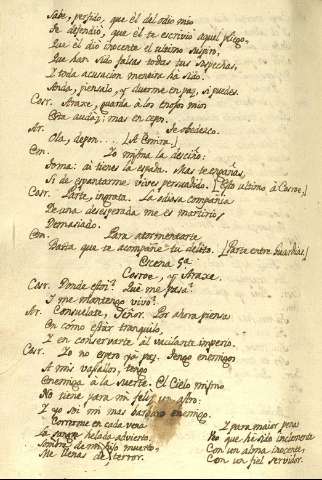 Sabe, perfido, que él del odio mio
Te defendió, que él te escrivió aquel pliego,
Que él dió inocente el ultimo suspiro,
Que han sido falsas todas tus sospechas,
I toda acusacion mentira ha sido.
Anda, piensalo, y duerme en paz, si puedes.
Cosr. Araxe, guarda á los enojos mios
Esta audáz: mas en cepo.
Ar. Te obedezco.
Ola, depon.... [A Emira.]
Em. Yo misma la desciño:
Toma: ai tienes la espada. Mas te engañas,
Si de espantarme vives persuadido. [Esto ultimo á Cosroe.]
Cosr. Parte, ingrata. La odiosa compañia
De una desesperada me es martirio
Demasiado.
Em. Para atormentarte
Basta que te acompañe tu delito. [Parte entre Guardias.]
Escena 5ª
Cosroe, y Araxe.
Cosr. Donde estoi? Qué me pasa?
I me mantengo vivo?
Ar. Consuelate, Señor. Por ahora piensa
En como estár tranquilo,
I en conservarte el vacilante imperio.
Cosr. Yo no espero yá paz. Tengo enemigos
A mis vasallos, tengo
Enemiga á la suerte. El Cielo mismo
No tiene para mi feliz un astro:
I yo soi mi mas barbaro enemigo.
Correrme en cada vena
La sangre helada advierto.
Sombra de mi hijo muerto,
Me llenas de terror.
I para maior pena
Veo que he sido inclemente
Con un alma inocente,
Con un fiel servidor.